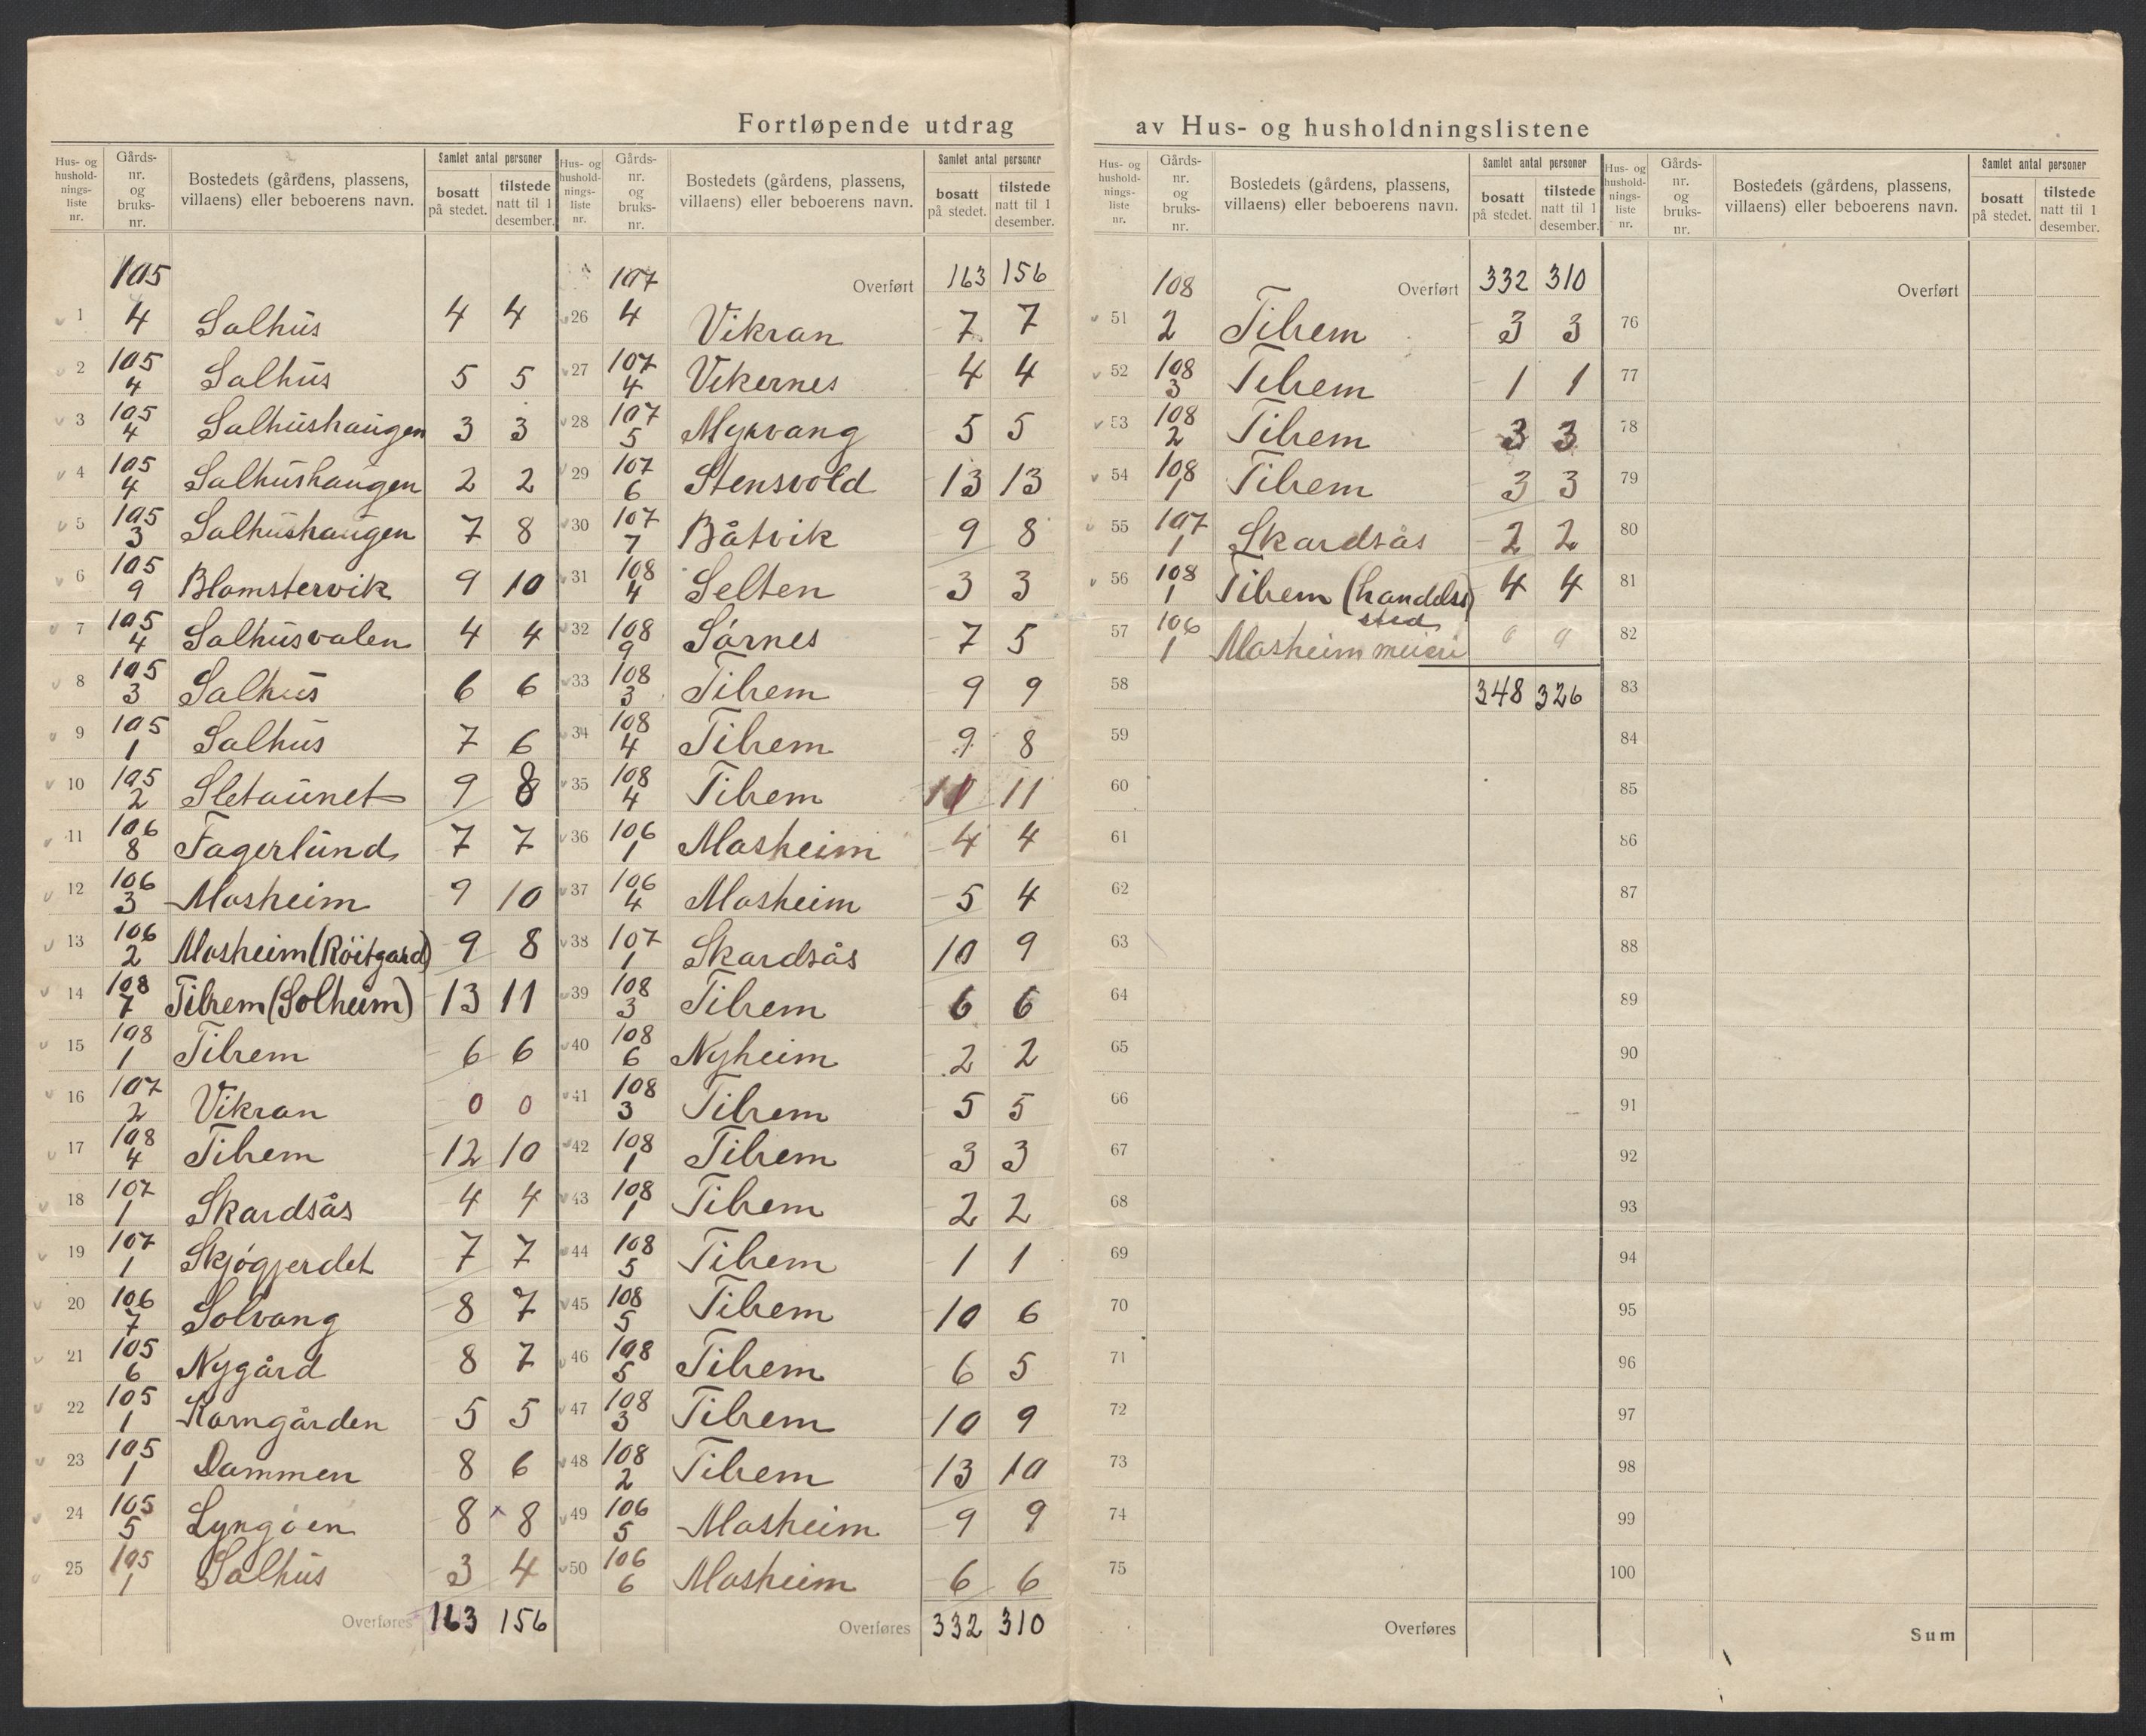 Fortløpende utdrag av Hus- og husholdningslistene
Hus- og hushold- nings- liste nr. | Gårds- nr. og bruks- nr. | Bostedets (gårdens, plassens, villaens) eller beboerens navn. | Samlet antal personer | bosatt på stedet. | tilstede natt til 1 desember.
1 105 4 Salhus 4 4
2 105 4 Salhus 5 5
3 105 4 Salhushaugen 3 3
4 105 4 Salhushaugen 2 2
5 105 3 Salhushaugen 7 8
6 105 9 Blomstervik 9 10
7 105 4 Salhusvalen 4 4
8 105 3 Salhus 6 6
9 105 1 Salhus 7 6
10 105 2 Sletaunet 9 8
11 106 8 Fagerlund 7 7
12 106 3 Mosheim 9 10
13 106 2 Mosheim (Röitgard) 9 8
14 108 7 Tilrem (Solheim) 13 11
15 108 1 Tilrem 6 6
16 107 2 Vikran 0 0
17 108 4 Tilrem 12 10
18 107 1 Skardsås 4 4
19 107 1 Skjógjerdet 7 7
20 106 7 Solvang 8 7
21 105 6 Nygård 8 7
22 105 1 Korngården 5 5
23 105 1 Dammen 8 6
24 105 5 Lyngóen 8 × 8
25 105 1 Salhus 3 4
Overføres 163 156
Hus- og hushold- nings- liste nr. | Gårds- nr. og bruks- nr. | Bostedets (gårdens, plassens, villaens) eller beboerens navn. | Samlet antal personer | bosatt på stedet. | tilstede natt til 1 desember.
Overført 163 156
26 107 4 Vikran 7 7
27 107 4 Vikernes 4 4
28 107 5 Myrvang 5 5
29 107 6 Stensvold 13 13
30 107 7 Båtvik 9 8
31 108 4 Selten 3 3
32 108 9 Sórnes 7 5
33 108 3 Tilrem 9 9
34 108 4 Tilrem 9 8
35 108 4 Tilrem 11
36 106 1 Mosheim 4 4
37 106 4 Mosheim 5 4
38 107 1 Skardsås 10 9
39 108 3 Tilrem 6 6
40 108 6 Nyheim 2 2
41 108 3 Tilrem 5 5
42 108 1 Tilrem 3 3
43 108 1 Tilrem 2 2
44 108 5 Tilrem 1 1
45 108 5 Tilrem 10 6
46 108 5 Tilrem 6 5
47 108 3 Tilrem 10 9
48 108 2 Tilrem 13 10
49 106 5 Mosheim 9 9
50 106 6 Mosheim 6 6
Overføres 332 310
Hus- og hushold- nings- liste nr. | Gårds- nr. og bruks- nr. | Bostedets (gårdens, plassens, villaens) eller beboerens navn. | Samlet antal personer | bosatt på stedet. | tilstede natt til 1 desember.
Overført 332 310
51 108 2 Tilrem 3 3
52 108 3 Tilrem 1 1
53 108 2 Tilrem 3 3
54 108 1 Tilrem 3 3
55 107 1 Skardsås 2 2
56 108 1 Tilrem (handelssted) 4 4
57 106 1 Mosheim meieri 0 0
58 348 326
59
60
61
62
63
64
65
66
67
68
69
70
71
72
73
74
75
Overføres
Hus- og hushold- nings- liste nr. | Gårds- nr. og bruks- nr. | Bostedets (gårdens, plassens, villaens) eller beboerens navn. | Samlet antal personer | bosatt på stedet. | tilstede natt til 1 desember.
Overført
76
77
78
79
80
81
82
83
84
85
86
87
88
89
90
91
92
93
94
95
96
97
98
99
100
Sum